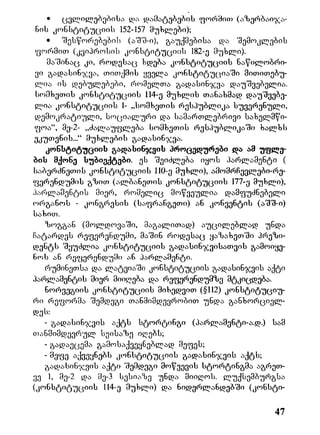 • ცვლილებებისა და დამატებების ფორმით (აზერბაიჯა-
ნის კონსტიტუციის 152-157 მუხლები);
• შესწორებების (აშშ-ი), გაუქმებისა და შემოკლების
ფორმით (კვიპროსის კონსტიტუციის 182-ე მუხლი).
მაშინაც კი, როდესაც ხდება კონსტიტუციის ნაწილობრი-
ვი გადასინჯვა, თითქმის ყველა კონსტიტუციაში მითითებუ-
ლია ის დებულებები, რომელთა გადასინჯვა დაუშვებელია.
სომხეთის კონსტიტუციის 114-ე მუხლის თანახმად დაუშვებე-
ლია კონსტიტუციის 1- „სომხეთის რესპუბლიკა სუვერენული,
დემოკრატიული, სოციალური და სამართლებრივი სახელმწი-
ფოა“, მე-2- „ძალაუფლება სომხეთის რესპუბლიკაში ხალხს
ეკუთვნის...“ მუხლების გადასინჯვა.
კონსტიტუციის გადასინჯვის პროცედურები და ამ უფლე-
ბის მქონე სუბიექტები. ეს შეიძლება იყოს პარლამენტი (
საბერძნეთის კონსტიტუციის 110-ე მუხლი), ამომრჩევლები-რე-
ფერენდუმის გზით (ალბანეთის კონსტიტუციის 177-ე მუხლი),
პარლამენტის მიერ, რომელიც მოწვეულია დამფუძნებელი
ორგანოს - კონგრესის (საფრანგეთი) ან კონვენტის (აშშ-ი)
სახით.
ზოგგან (მოლდოვაში, მაგალითად) აუცილებლად უნდა
ჩატარდეს რეფერენდუმი, მაშინ როდესაც ყაზახეთში პრეზი-
დენტს შეუძლია კონსტიტუციის გადასინჯვისათვის გამოიყე-
ნოს ან რეფერენდუმი ან პარლამენტი.
რუმინეთსა და ლატვიაში კონსტიტუციის გადასინჯვის აქტი
პარლამენტის მიერ მიიღება და რეფერენდუმზე მტკიცდება.
ნორვეგიის კონსტიტუციის მიხედვით (§112) კონსტიტუციუ-
რი რეფორმა შემდეგი თანმიმდევრობით უნდა განხორციელ-
დეს:
- გადასინჯვის აქტს სტორტინგი (პარლამენტი-ა.დ.) სამ
თანმიმდევრულ სესიაზე იღებს;
- გადაეცემა გამოსაქვეყნებლად მეფეს;
- მეფე აქვეყნებს კონსტიტუციის გადასინჯვის აქტს;
გადასინჯვის აქტი შემდეგი მოწვევის სტორტინგმა აგრეთ-
ვე 1, მე-2 და მე-3 სესიაზე უნდა მიიღოს. ლუქსემბურგსა
(კონსტიტუციის 114-ე მუხლი) და ნიდერლანდებში (კონსტი-
47